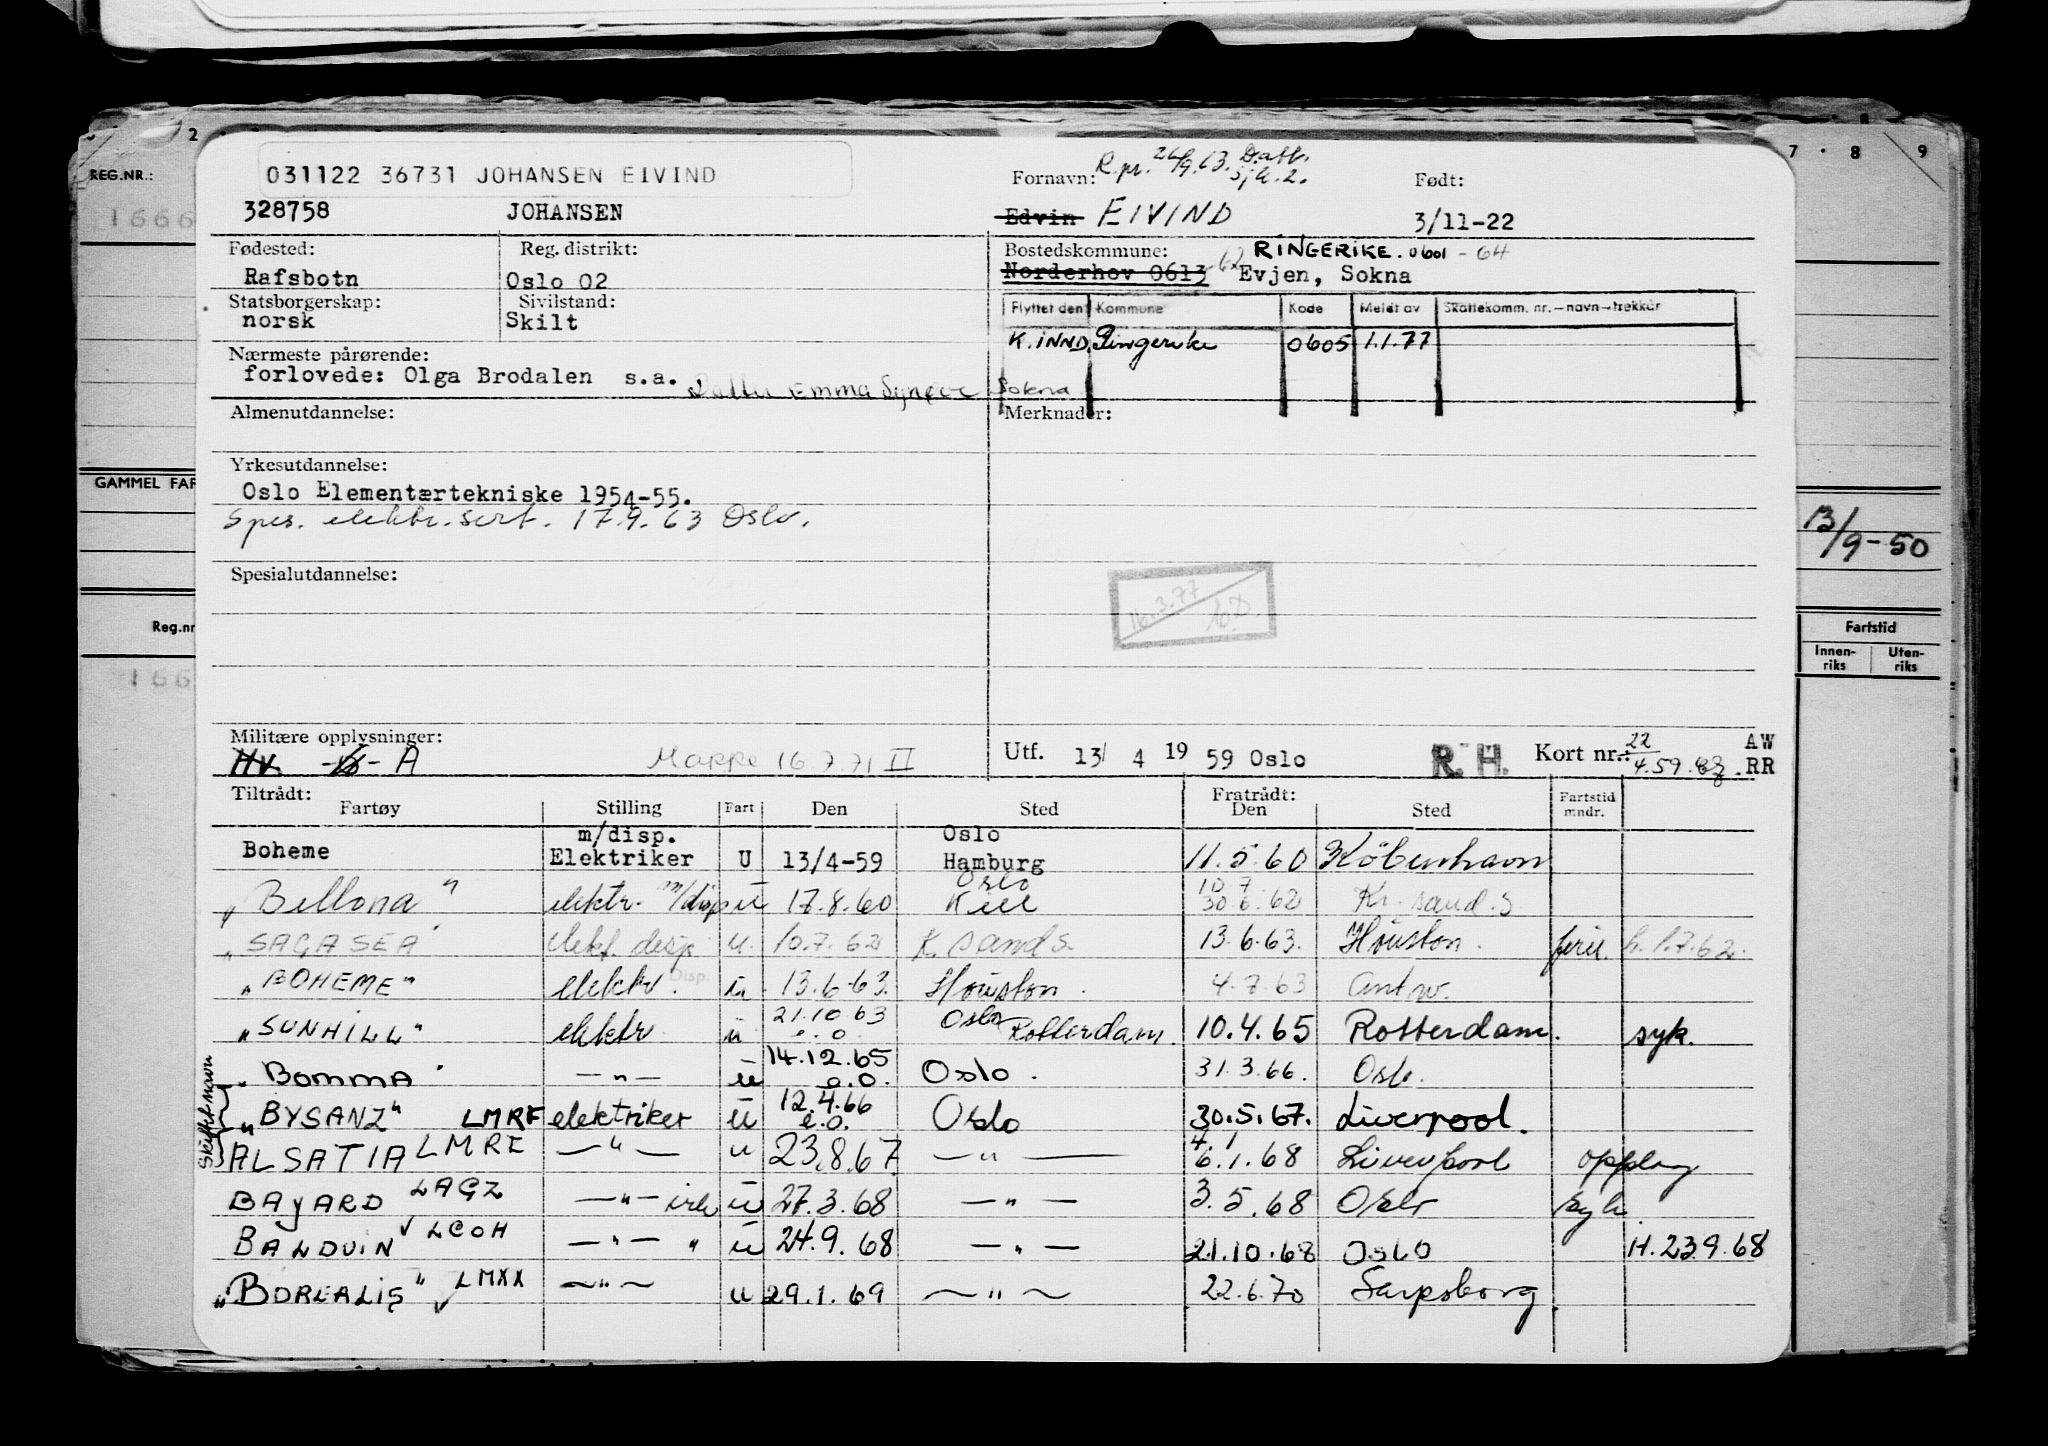 2
7 · 8 9
REG.NR.:
1666
GAMMEL FAR
Reg.nr
166
13/9-50
Fartstid
Innen-riks Uten-riks
031122 36731 JOHANSEN EIVIND
Fornavn: R.pr. 26/9.63. Datt. sjh.2. Født:
328758 JOHANSEN Edvin EIVIND 3/11-22
Fødested: Reg. distrikt: Bostedskommune: RINGERIKE. 0601 - 64
Rafsbotn Oslo 02 Norderhov 0613 -62 Evjen, Sokna
Statsborgerskap: Sivilstand: Flyttet den Kommune Kode Meldt av Skattekomm. nr.—navn—trekkår
norsk Skilt K.INND. Ringerike 0605 1.1.77
Nærmeste pårørende:
forlovede: Olga Brodalen s.a. Datter Emma Synøve Sokna
Almenutdannelse: Merknader:
Yrkesutdannelse:
Oslo Elementærtekniske 1954-55.
Spes. elektr. sert. 17.9.63 Oslo.
Spesialutdannelse:
16.3.77
Militære opplysninger:
Hv. A Mappe 16.7.71 II Utf. 13/ 4 19 59 Oslo R. H. Kort nr.: 22 4.59. AW RR
Tiltrådt: Fratrådt:
Fartøy Stilling Fart Den Sted Den Sted Fartstid mndr.
m/disp. Oslo
Boheme Elektriker U 13/4-59 Hamburg 11.5.60 København
Oslo 10.7
"Bellona" elektr. m/disp u 17.8.60 Kiel 30.6.62 Kr. sand. S
"SAGASEA" elekt. disp u. 10.7.62 K. sand s. 13.6.63. Houston. ferie. h. 1.7.62.
"BOHEME" elektr. Disp. u 13.6.63. Houston. 4.7.63 Antw.
"SUNHILL" elektr. u 21.10.63 e.o. Oslo Rotterdam. 10.4.65 Rotterdam. syk.
"BOMMA" —"— u 14.12.65 e.o. Oslo. 31.3.66. Oslo.
Skiftet navn
"BYSANZ" LMRF elektriker u 12.4.66 e.o. Oslo 30.5.67. Liverpool.
ALSATIA LMRE —"— u 23.8.67 —"— 4.1 6.1.68 Liverpool opplag
BAYARD LAGZ —"— u 27.3.68 —"— 3.5.68 Oslo syk.
BALDUIN LCOH —"— " u 24.9.68 —"— 21.10.68 OSLO H. 23.9.68
"BOREALIS" LMXX —"— u 29.1.69 —"— 22.6.70 Sarpsborg.